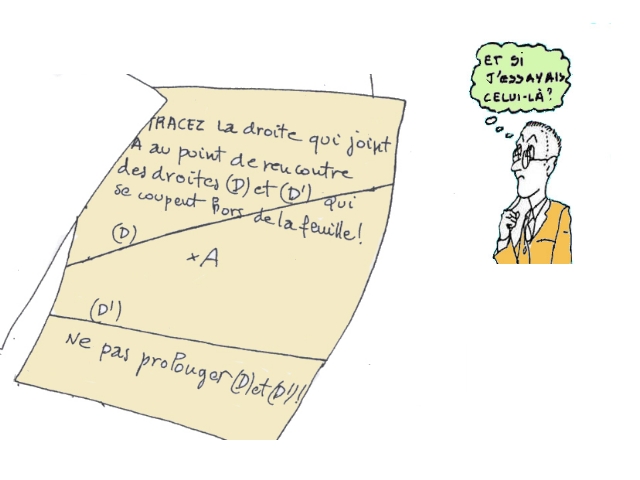 TRACEZ La droite qui joint
A au point de rencontre
des droites (D) et (D') qui
se coupent hors de la feuille!
(D)
x A
(D')
Ne pas prolonger (D) et (D')!
ET Si
J'ESSAYAIS
CELUI-LÀ?